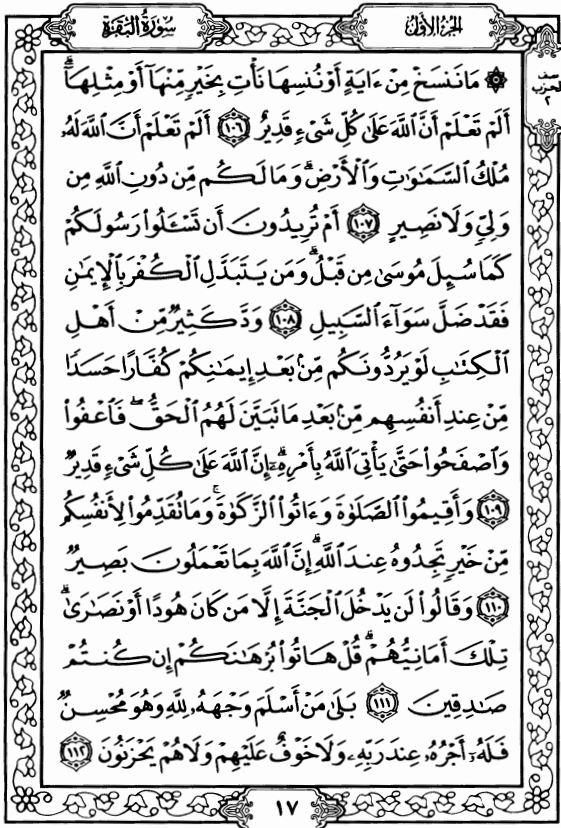 سورة البقرة
الجزء الأول
نصف
الحزب
٢
۞ مَا نَنسَخْ مِنْ ءَايَةٍ أَوْ نُنسِهَا نَأْتِ بِخَيْرٍ مِّنْهَآ أَوْ مِثْلِهَآ ۗ
أَلَمْ تَعْلَمْ أَنَّ ٱللَّهَ عَلَىٰ كُلِّ شَىْءٍ قَدِيرٌ ١٠٦ أَلَمْ تَعْلَمْ أَنَّ ٱللَّهَ لَهُۥ
مُلْكُ ٱلسَّمَٰوَٰتِ وَٱلْأَرْضِ ۗ وَمَا لَكُم مِّن دُونِ ٱللَّهِ مِن
وَلِىٍّ وَلَا نَصِيرٍ ١٠٧ أَمْ تُرِيدُونَ أَن تَسْـَٔلُوا۟ رَسُولَكُمْ
كَمَا سُئِلَ مُوسَىٰ مِن قَبْلُ ۗ وَمَن يَتَبَدَّلِ ٱلْكُفْرَ بِٱلْإِيمَٰنِ
فَقَدْ ضَلَّ سَوَآءَ ٱلسَّبِيلِ ١٠٨ وَدَّ كَثِيرٌ مِّنْ أَهْلِ
ٱلْكِتَٰبِ لَوْ يَرُدُّونَكُم مِّنۢ بَعْدِ إِيمَٰنِكُمْ كُفَّارًا حَسَدًا
مِّنْ عِندِ أَنفُسِهِم مِّنۢ بَعْدِ مَا تَبَيَّنَ لَهُمُ ٱلْحَقُّ ۖ فَٱعْفُوا۟
وَٱصْفَحُوا۟ حَتَّىٰ يَأْتِىَ ٱللَّهُ بِأَمْرِهِۦٓ ۗ إِنَّ ٱللَّهَ عَلَىٰ كُلِّ شَىْءٍ قَدِيرٌ
١٠٩ وَأَقِيمُوا۟ ٱلصَّلَوٰةَ وَءَاتُوا۟ ٱلزَّكَوٰةَ ۚ وَمَا تُقَدِّمُوا۟ لِأَنفُسِكُم
مِّنْ خَيْرٍ تَجِدُوهُ عِندَ ٱللَّهِ ۗ إِنَّ ٱللَّهَ بِمَا تَعْمَلُونَ بَصِيرٌ
١١٠ وَقَالُوا۟ لَن يَدْخُلَ ٱلْجَنَّةَ إِلَّا مَن كَانَ هُودًا أَوْ نَصَٰرَىٰ ۗ
تِلْكَ أَمَانِيُّهُمْ ۗ قُلْ هَاتُوا۟ بُرْهَٰنَكُمْ إِن كُنتُمْ
صَٰدِقِينَ ١١١ بَلَىٰ مَنْ أَسْلَمَ وَجْهَهُۥ لِلَّهِ وَهُوَ مُحْسِنٌ
فَلَهُۥٓ أَجْرُهُۥ عِندَ رَبِّهِۦ وَلَا خَوْفٌ عَلَيْهِمْ وَلَا هُمْ يَحْزَنُونَ ١١٢
١٧